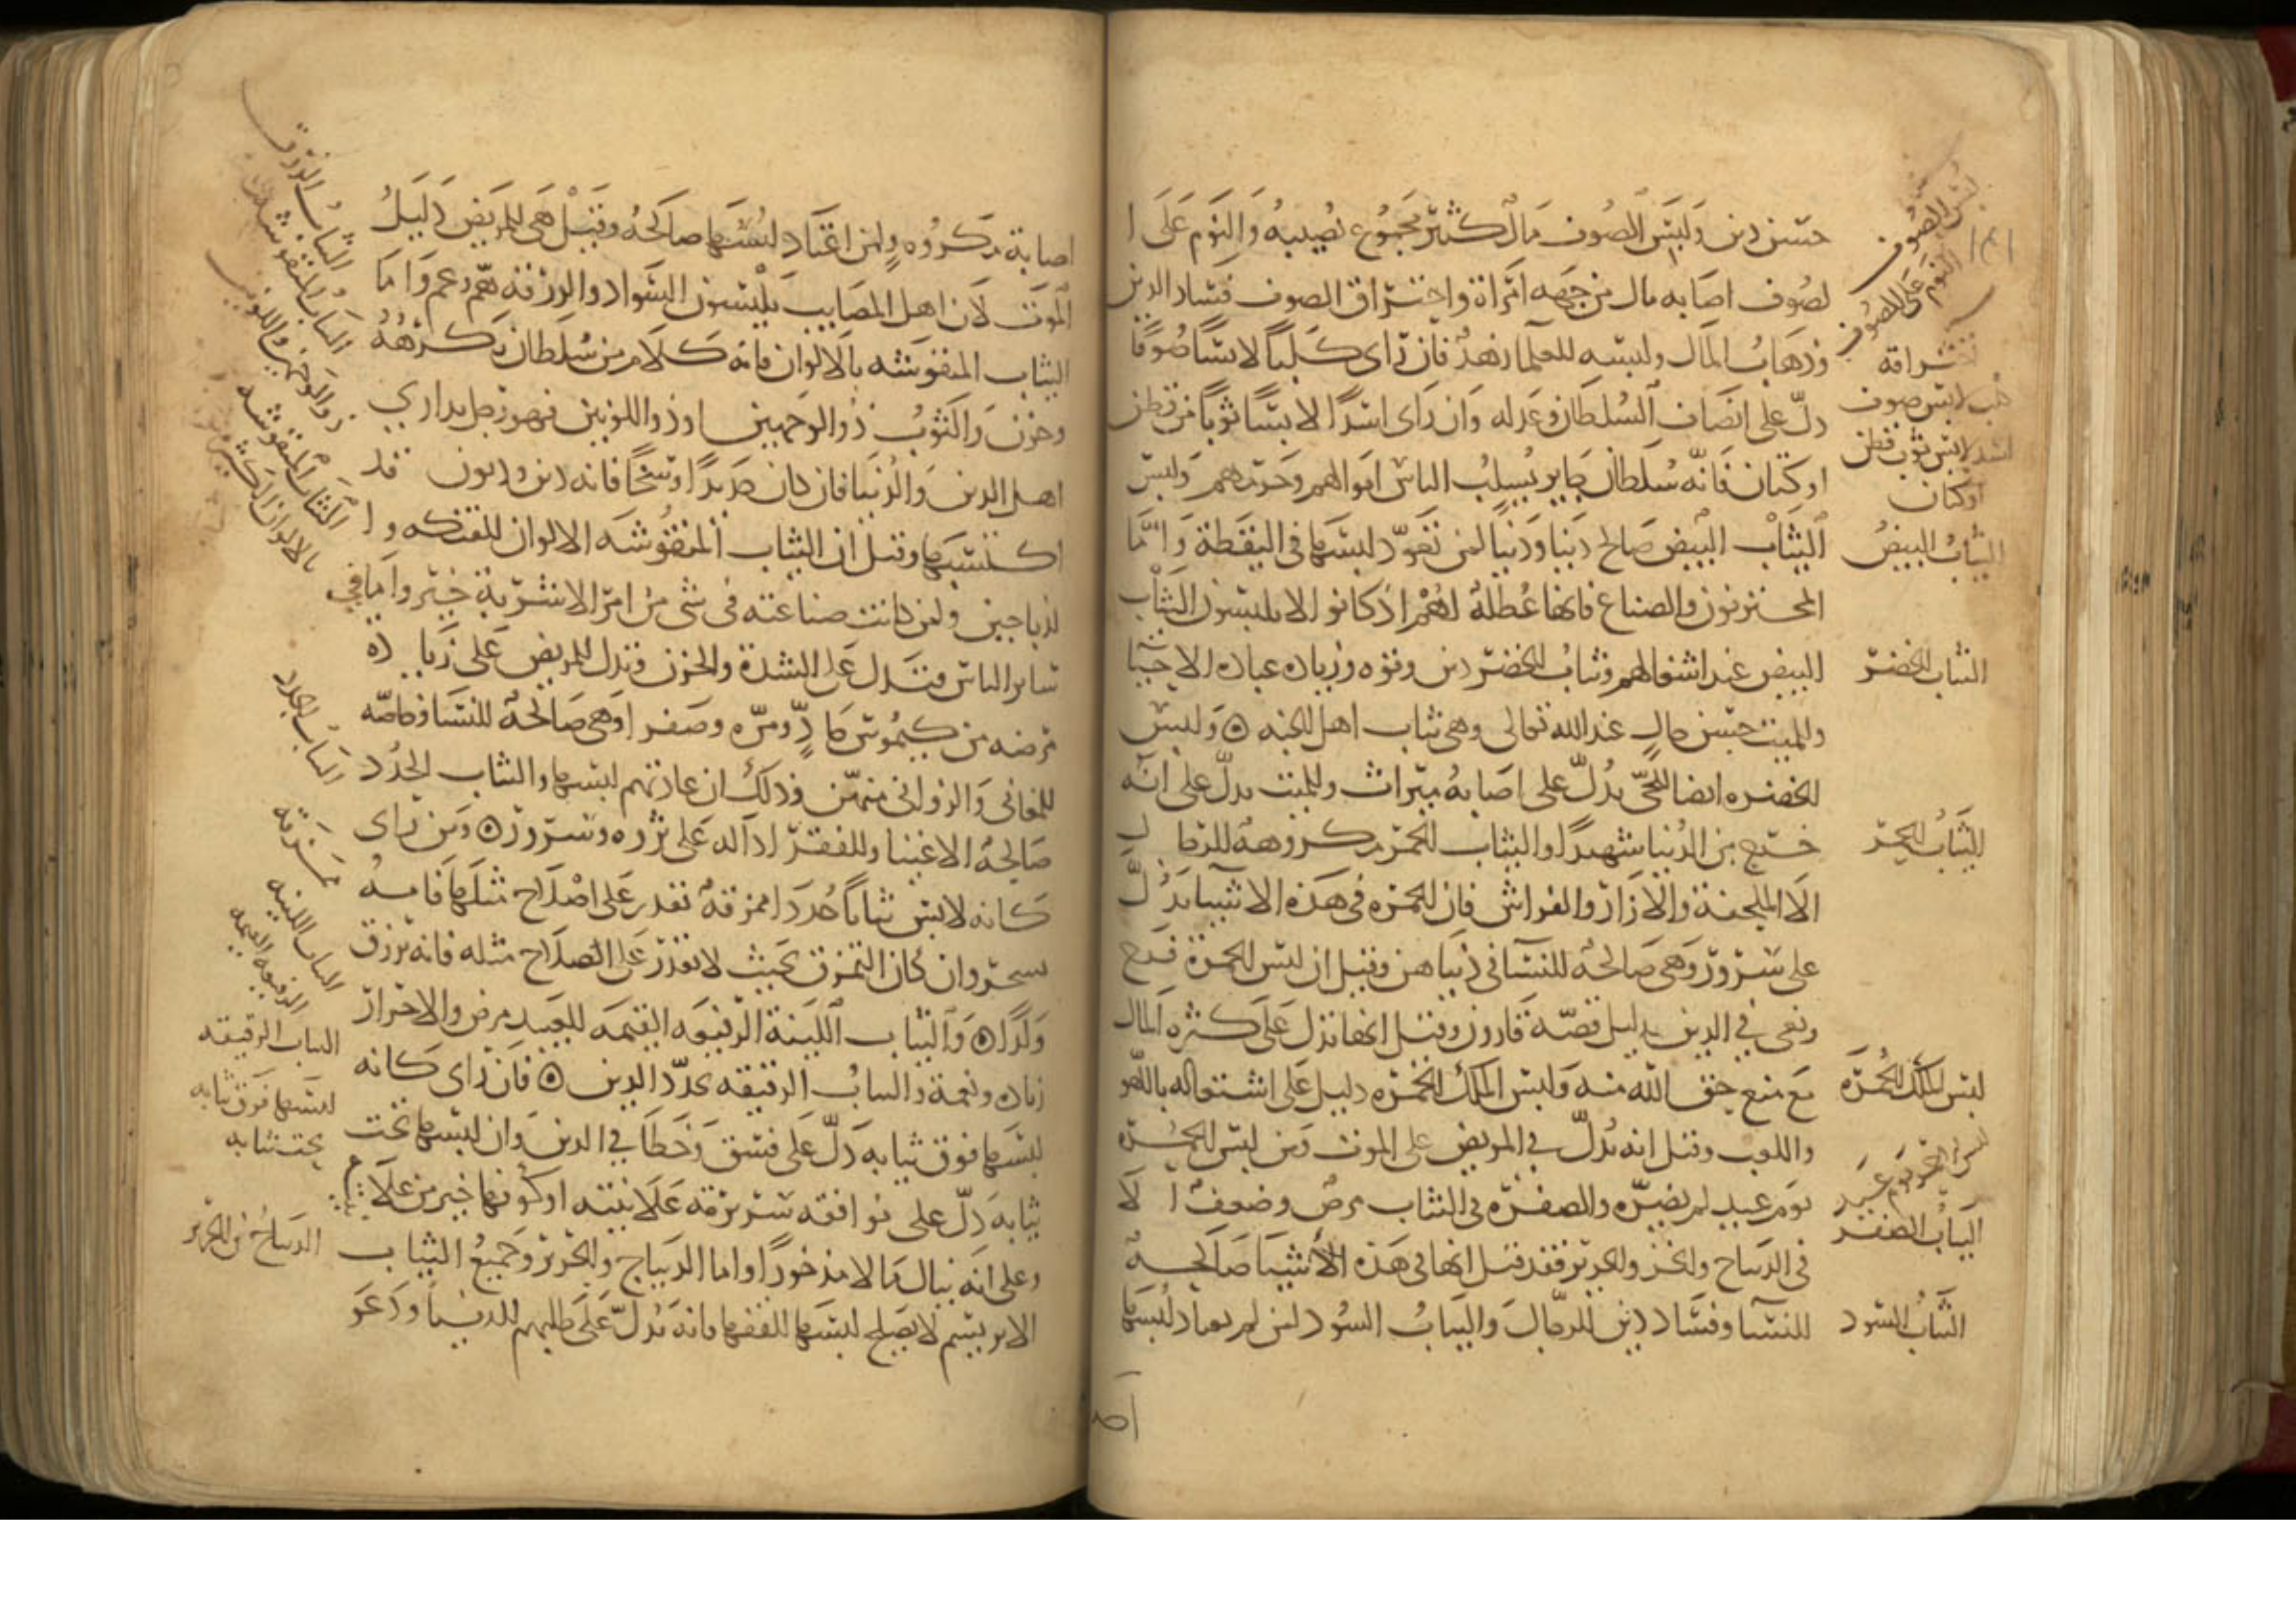 حسن دين ولبس الصوف مال كثير مجموع نصيبه والنوم على ا
لصوف اصابه مال من جهه امراة واحتراق الصوف فساد الدين
وذهاب المال ولبسه للعلما زهد فان راى كلبا لابسا صوفا
دل على انصاف السلطان وعدله وان راى اسدا لابسا ثوبا من قطن
او كتان فانه سلطان جاير يسلب الناس اموالهم وحرمهم ولبس
الثياب البيض صالح دينا ودنيا لمن تعود لبسها في اليقظة واما
المحترفون والصناع فانها عطلة لهم اذ كانوا لا يلبسون الثياب
البيض عند اشغالهم وثياب الخضر دين وقوه وزياده عباده للاحيا
وللميت حسن حال عند الله تعالى وهي ثياب اهل الجنه ۞ ولبس
الخضره ايضا للحي يدل على اصابة ميراث وللميت يدل على انه
خرج من الدنيا شهيدا والثياب الحمر مكروهة للرجا ل
الا الملحفة والازار والفراش فان الحمره في هذه الاشيا تدل
على سرور وهي صالحة للنسا في دنياهن وقيل ان لبس الحمرة فرح
وبغى في الدين بدليل قصة قارون وقيل انها تدل على كثره المال
مع منع حق الله منه ولبس الملك الحمره دليل على اشتغاله باللهو
واللعب وقيل انه يدل في المريض على الموت ومن لبس الحمره
يوم عيد لم يضره والصفره في الثياب مرض وضعف ا لا
في الديباج والخز والحرير فقد قيل انها في هذه الاشيا صالحة
للنسا وفساد دين للرجال والثياب السود لمن لم يعتاد لبسها
اص
لبس الصوف
النوم على الصوف
كلب لابس صوف
اسد لابس ثوب قطن
او كتان
الثياب البيض
الثياب الخضر
الثياب الحمر
لبس الملك الحمره
لبس الحمر يوم عيد
الثياب الصفر
الثياب السود
اصابة مكروه ولمن اعتاد لبسها صالحة وقيل هي للمريض دليل
الموت لان اهل المصايب يلبسون السواد والزرقه هم وغم واما
الثياب المنقوشه بالالوان فانه كلام من سلطان يكرهه
وحزن والثوب ذو الوجهين او ذو اللونين فهو رجل يداري
اهل الدين والدنيا فان كان جديدا وسخا فانه دين وديون قد
اكتسبها وقيل ان الثياب المنقوشه الالوان للفتكه و ا
لذباحين ولمن كانت صناعته في شي من امر الاشربة خير واما في
ساير الناس فتدل على الشدة والحزن وتدل للمريض على زيا ده
مرضه من كيموس حاد ومره وصفرا وهي صالحة للنسا وخاصه
للمغاني والزواني منهن وذلك ان عادتهم لبسها والثياب الجدد
صالحة للاغنيا وللفقرا دآله على ثروه وسرور ۞ ومن راى
كانه لابس ثيابا جددا ممزقة يقدر على اصلاح مثلها فانه
يسحر وان كان التمزق بحيث لا يقدر على اصلاح مثله فانه يرزق
ولدا ۞ والثياب اللينة الرفيعه القيمه للعبيد مرض وللاحرار
زياده ونعمة والثياب الرقيقه تجدد الدين ۞ فان راى كانه
لبسها فوق ثيابه دل على فسق وخطا في الدين وان لبسها تحت
ثيابه دل على موافقه سريرته علانيته او كونها خير من علانيته
وعلى انه ينال مالا مذخورا واما الديباج والحرير وجميع الثياب
الابريسم لا يصلح لبسها للفقها فانه يدل على طلبهم للدنيا ودعو
الثياب الزرق
الثياب المنقوشه
ذو الوجهين واللونين
الثياب المنقوشه
الثياب الجدد
ممزقه
الثياب اللينه
الرفيعه القيمه
الثياب الرقيقه
لبسها فوق ثيابه
تحت ثيابه
الديباج من الحرير